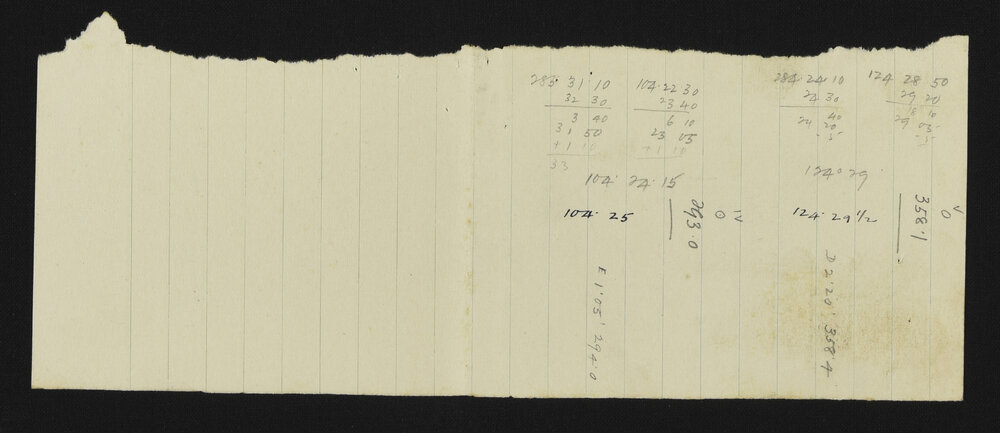 283· 31 10
32 30
3 40
31 50
+ 1 10
33
104· 22 30
23 40
6 10
23 05
+ 1 10
104· 24· 15
104· 25
293·0
O IV
E 1·05' 294·0
284· 24· 10
24 30
40
24 20
- 5
124 28 50
29 20
8 10
29 05
- 5
124° 29
124· 29 1/2
358·1
V O
D 2·20' 358·4